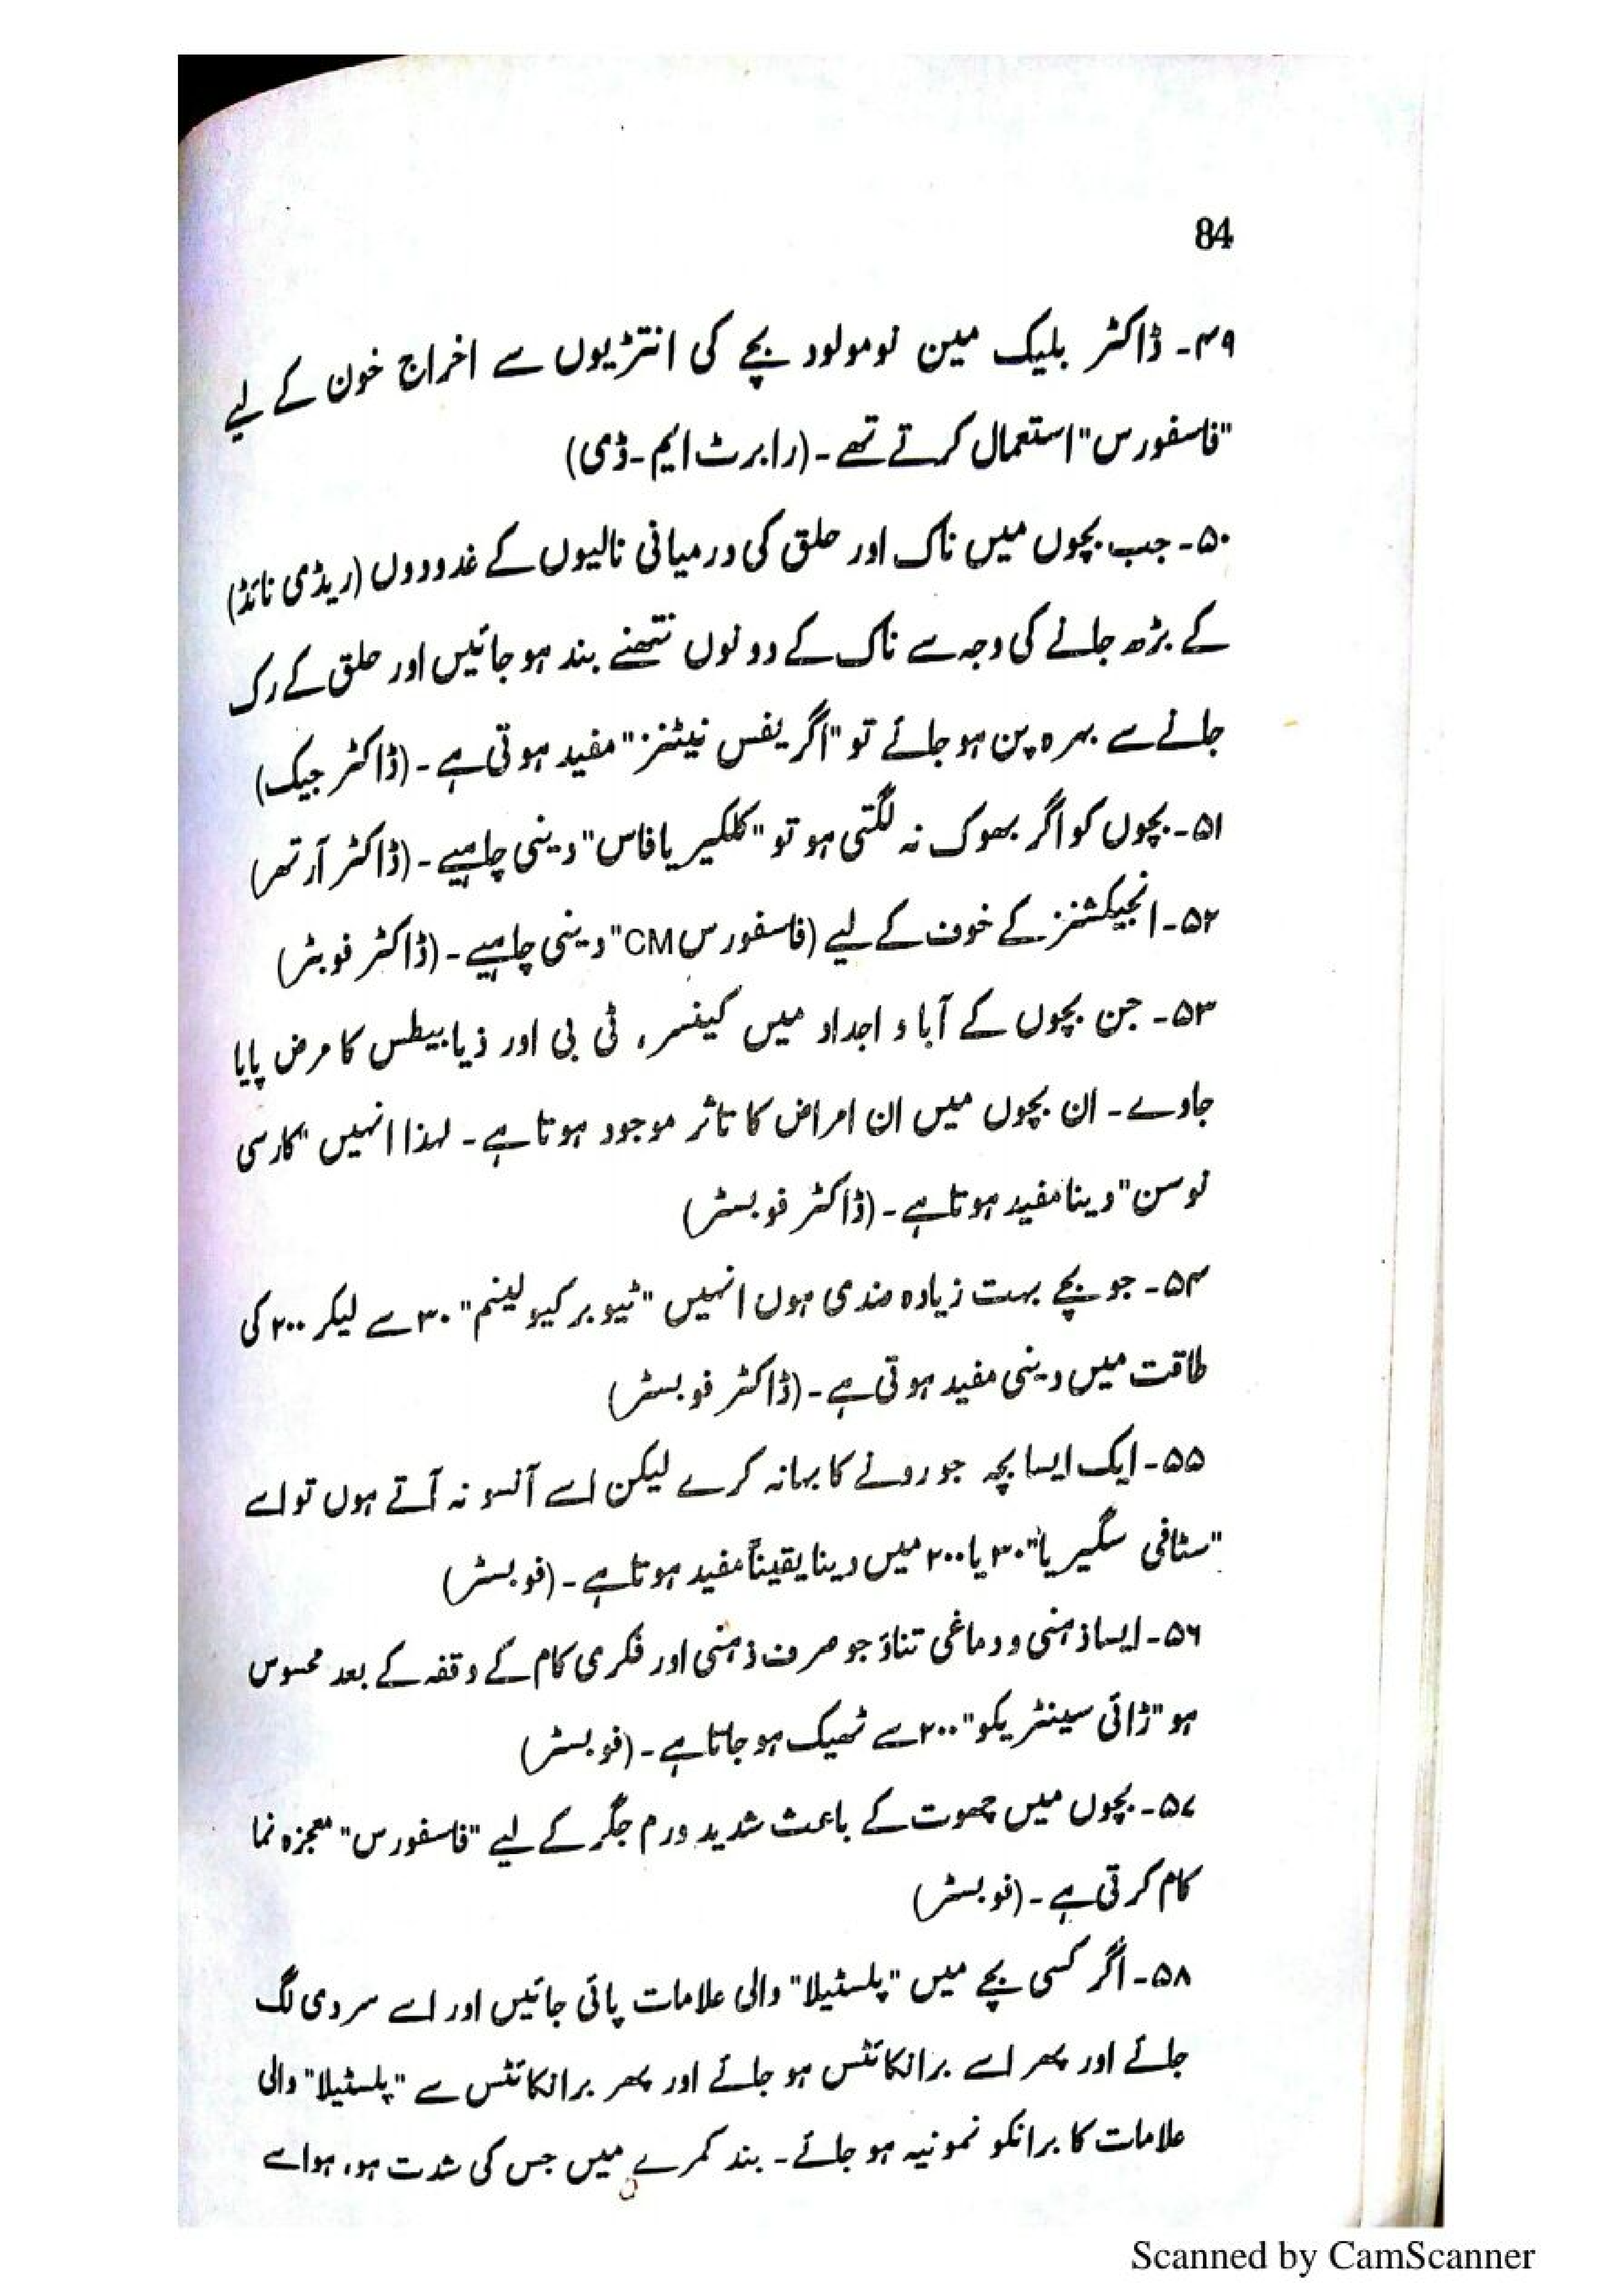 84
۴۹۔ ڈاکٹر بلیک مین نومولود بچے کی انتڑیوں سے اخراج خون کے لیے
"فاسفورس" استعمال کرتے تھے۔ (رابرٹ ایم۔ڈی)
۵۰۔ جب بچوں میں ناک اور حلق کی درمیانی نالیوں کے غدودوں (ریڈی نائڈ)
کے بڑھ جانے کی وجہ سے ناک کے دونوں نتھنے بند ہو جائیں اور حلق کے رک
جانے سے بہرہ پن ہو جائے تو "اگریفس نیٹنز" مفید ہوتی ہے۔ (ڈاکٹر جیک)
۵۱۔ بچوں کو اگر بھوک نہ لگتی ہو تو "کلکیریا فاس" دینی چاہیے۔ (ڈاکٹر آرتھر)
۵۲۔ انجیکشنز کے خوف کے لیے (فاسفورس CM" دینی چاہیے۔ (ڈاکٹر فوبٹر)
۵۳۔ جن بچوں کے آباء و اجداد میں کینسر، ٹی بی اور ذیابیطس کا مرض پایا
جاوے۔ ان بچوں میں ان امراض کا تاثر موجود ہوتا ہے۔ لہذا انہیں "کارسی
نوسن" دینا مفید ہوتا ہے۔ (ڈاکٹر فوبسٹر)
۵۴۔ جو بچے بہت زیادہ ضدی ہوں انہیں "ٹیوبرکیولینم" ۳۰ سے لیکر ۲۰۰ کی
طاقت میں دینی مفید ہوتی ہے۔ (ڈاکٹر فوبسٹر)
۵۵۔ ایک ایسا بچہ جو رونے کا بہانہ کرے لیکن اسے آنسو نہ آتے ہوں تو اسے
"سٹافی سگیریا" ۳۰ یا ۲۰۰ میں دینا یقیناً مفید ہوتا ہے۔ (فوبسٹر)
۵۶۔ ایسا ذہنی و دماغی تناؤ جو صرف ذہنی اور فکری کام کے وقفہ کے بعد محسوس
ہو "ڑائی سینٹریکو" ۲۰۰ سے ٹھیک ہو جاتا ہے۔ (فوبسٹر)
۵۷۔ بچوں میں چھوت کے باعث شدید ورم جگر کے لیے "فاسفورس" معجزہ نما
کام کرتی ہے۔ (فوبسٹر)
۵۸۔ اگر کسی بچے میں "پلسٹیلا" والی علامات پائی جائیں اور اسے سردی لگ
جائے اور پھر اسے برانکائٹس ہو جائے اور پھر برانکائٹس سے "پلسٹیلا" والی
علامات کا برانکو نمونیہ ہو جائے۔ بند کمرے میں جس کی شدت ہو، ہوا سے
Scanned by CamScanner